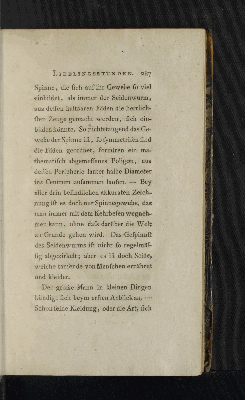 LIEBLINGSSTUNDEN. 247
Spinne, die sich auf ihr Gewebe so viel
einbildet, als immer der Seidenwurm,
aus dessen haltbaren Fäden die herrlich-
sten Zeuge gemacht werden, sich ein-
bilden könnte. So nichtstaugend das Ge-
webe der Spinne ist, so symmetrisch sind
die Fäden geordnet, formiren ein ma-
thematisch abgemessenes Poligon, aus
dessen Peripherie lauter halbe Diameter
ins Centrum zusammen laufen. — Bey
aller dem akkuraten Zeich-
nung ist es doch nur Spinnegewebe, das
man immer mit dem Kehrbesen wegneh-
men kann, ohne dass darüber die Welt
zu Grunde gehen wird. Das Gespinnst
des Seidenwurms ist nicht so regelmäs-
sig abgezirkelt; aber es ist doch Seide,
welche tausende von Menschen ernährt
und kleidet.
Der große Mann in kleinen Dingen
kündigt sich beym ersten Anblick an. —
Schon seine Kleidung, oder die Art, sich